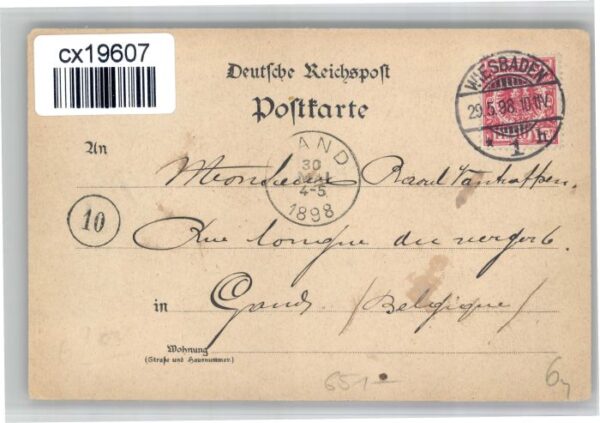 cx19607
Deutsche Reichspost
Postkarte
WIESBADEN
29.5.98.10-11V.
* 1 h
GAND
30
MAI
4-5
1898
An
Monsieur Raoul Vanhoffen.
10
Rue longue du verger 6.
in Gand. /Belgique/
Wohnung
(Straße und Hausnummer.)
651-